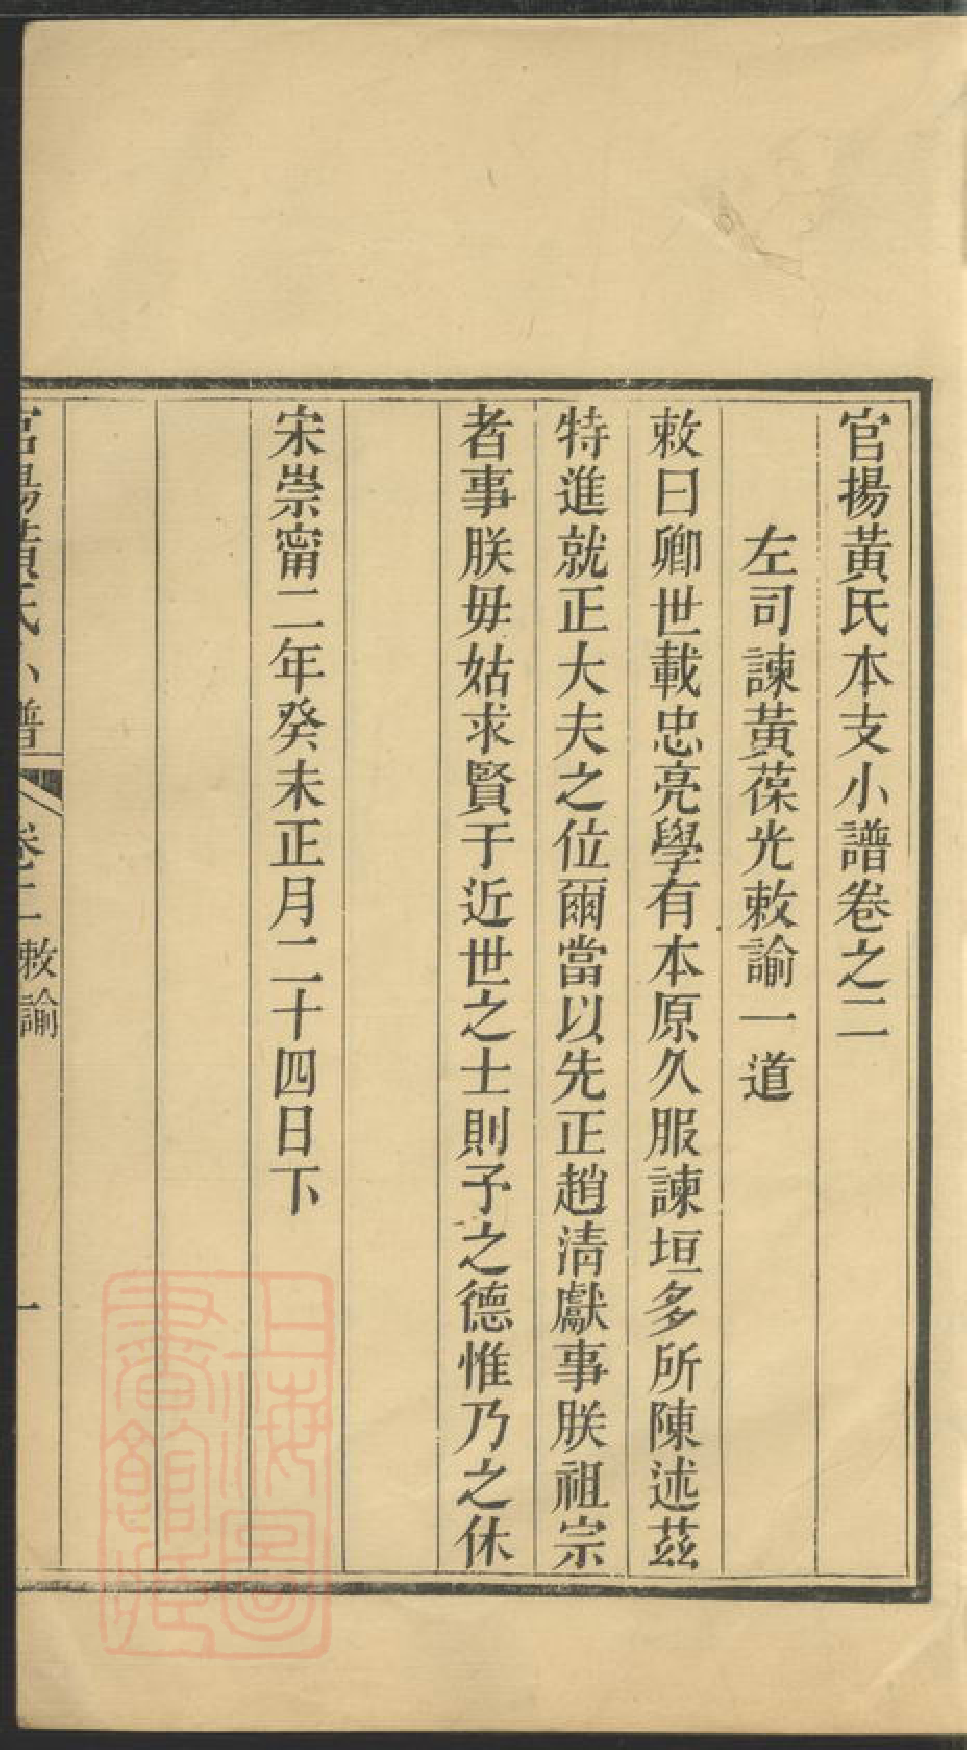 官揚黃氏本支小譜卷之二
左司諫黃葆光敕諭一道
敕曰卿世載忠亮學有本原久服諫垣多所陳述茲
特進就正大夫之位爾當以先正趙清獻事朕祖宗
者事朕毋姑求賢于近世之士則予之德惟乃之休
宋崇甯二年癸未正月二十四日下
官揚黃氏小譜 卷二 敕諭 一
上海圖
書館藏